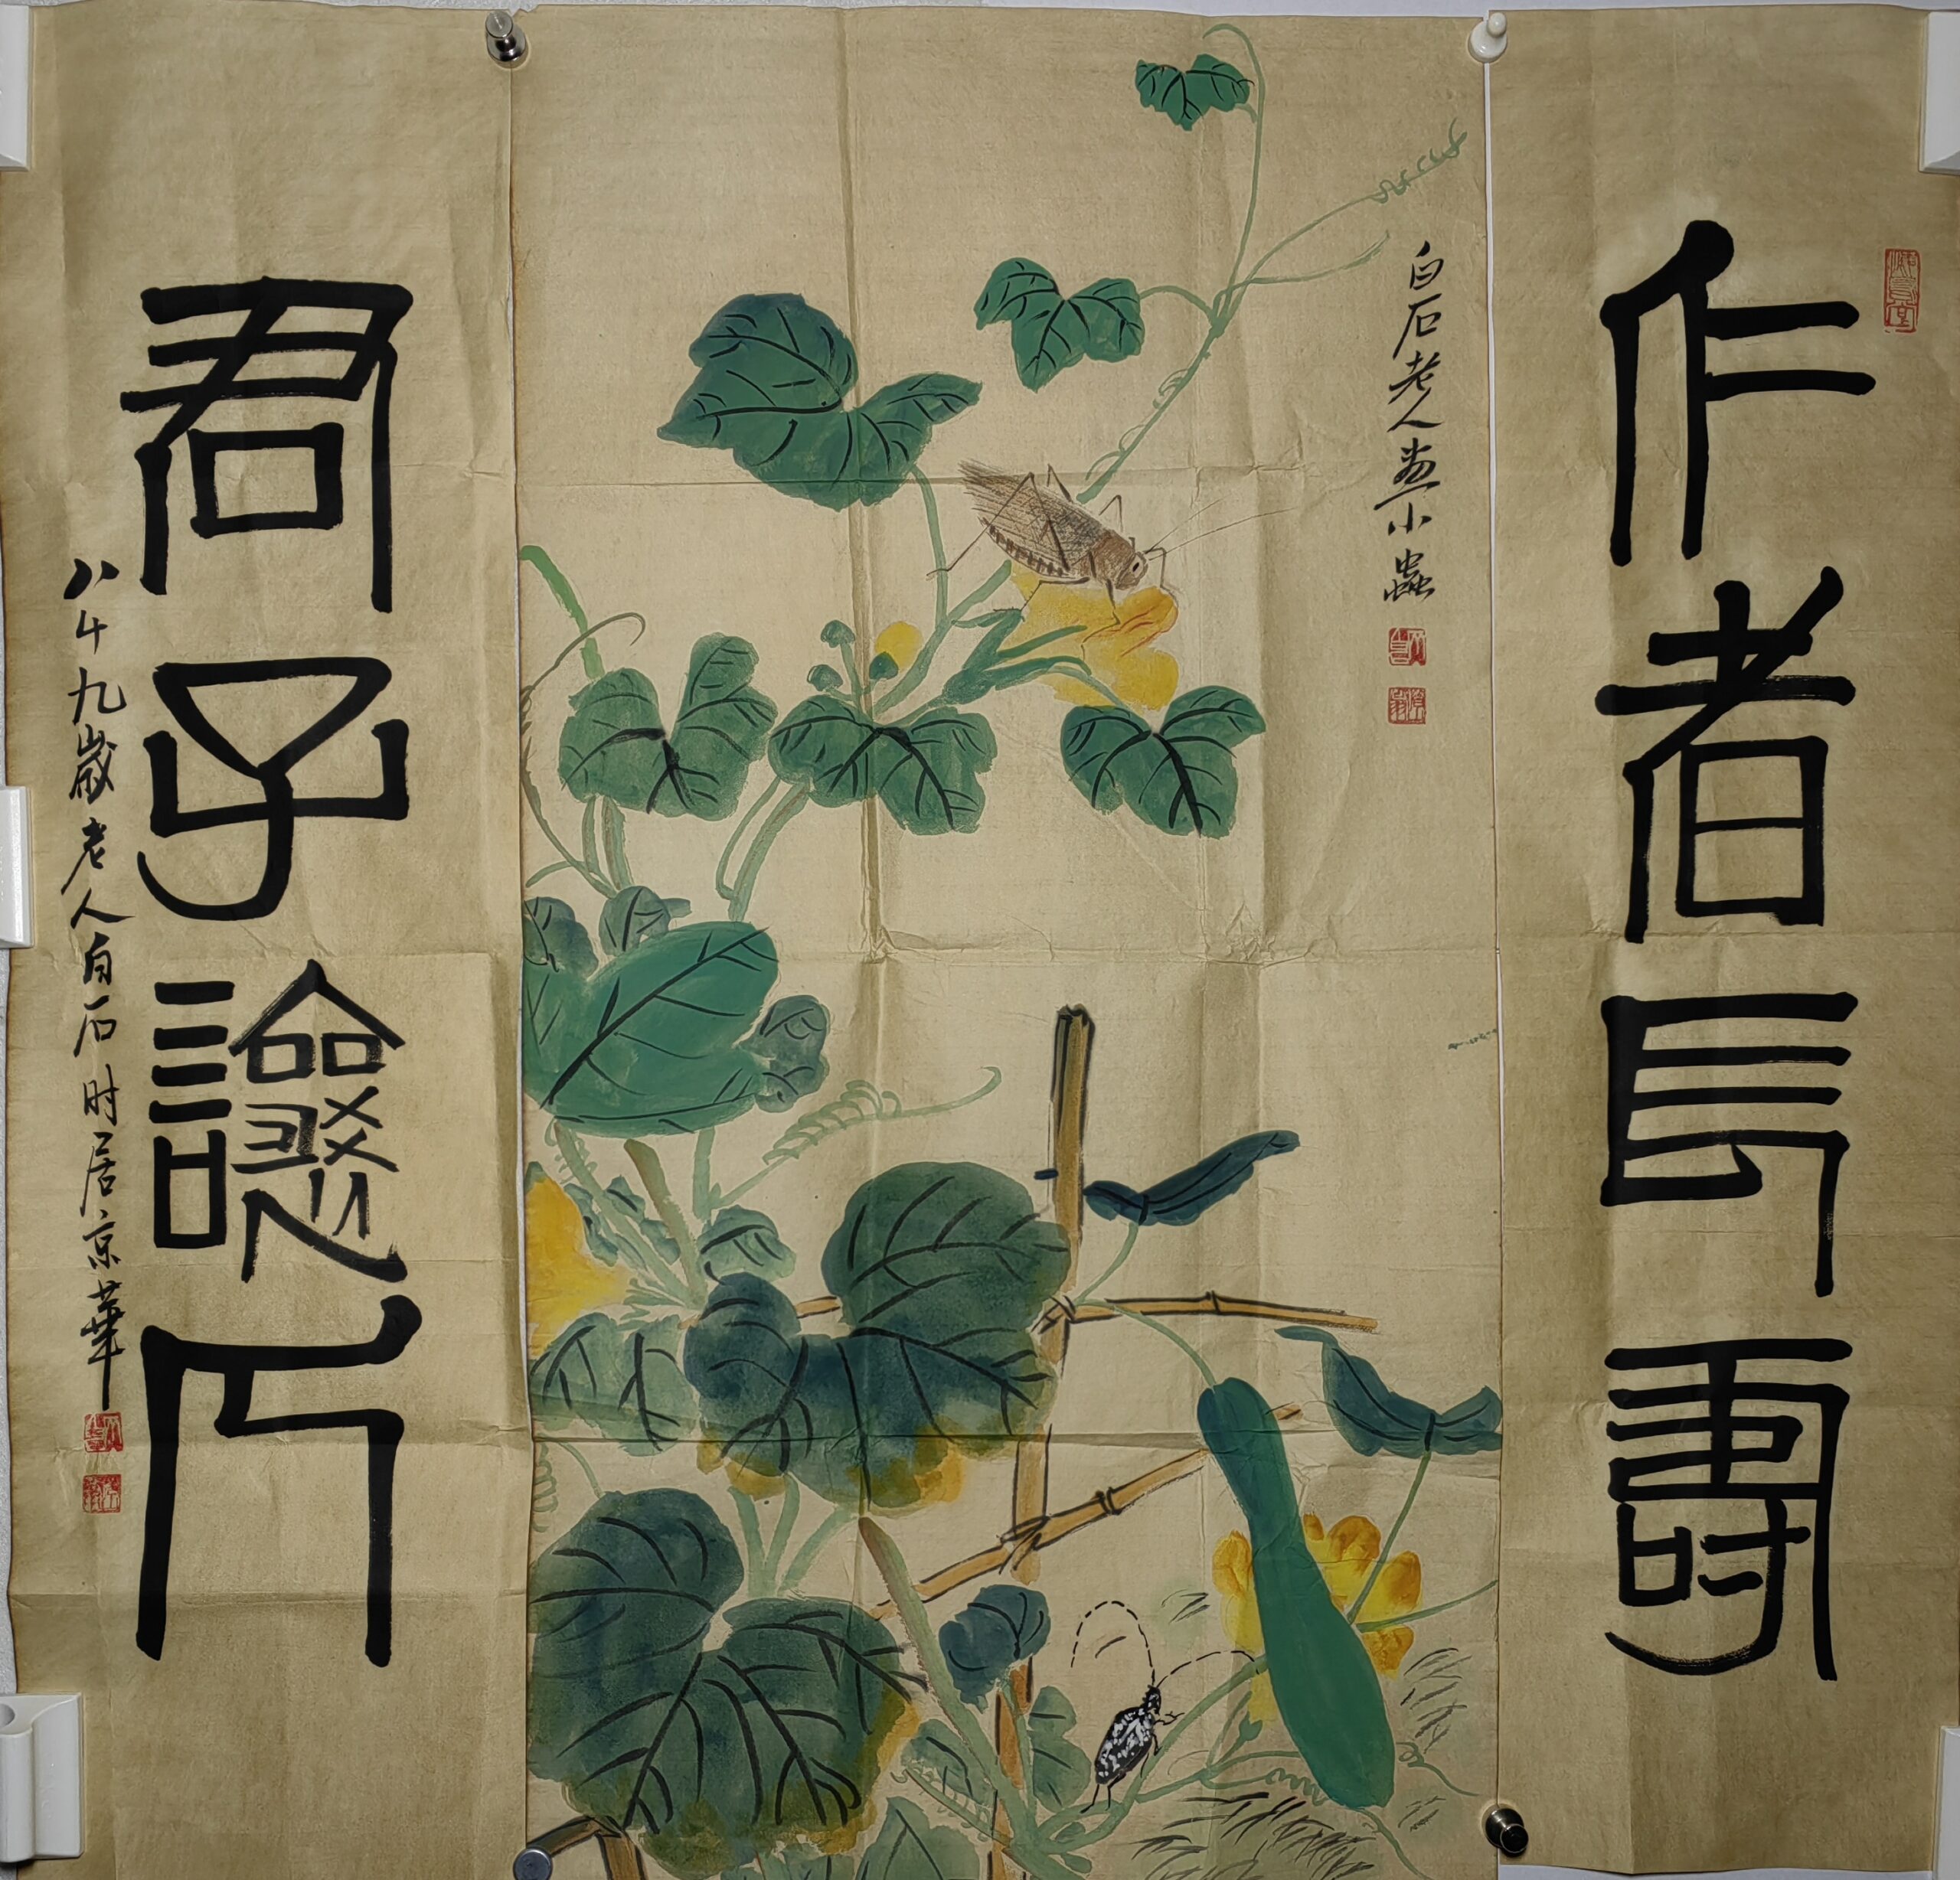 作者長壽
白石老人畫小蟲
君子讓
八十九歲老人白石时居京華